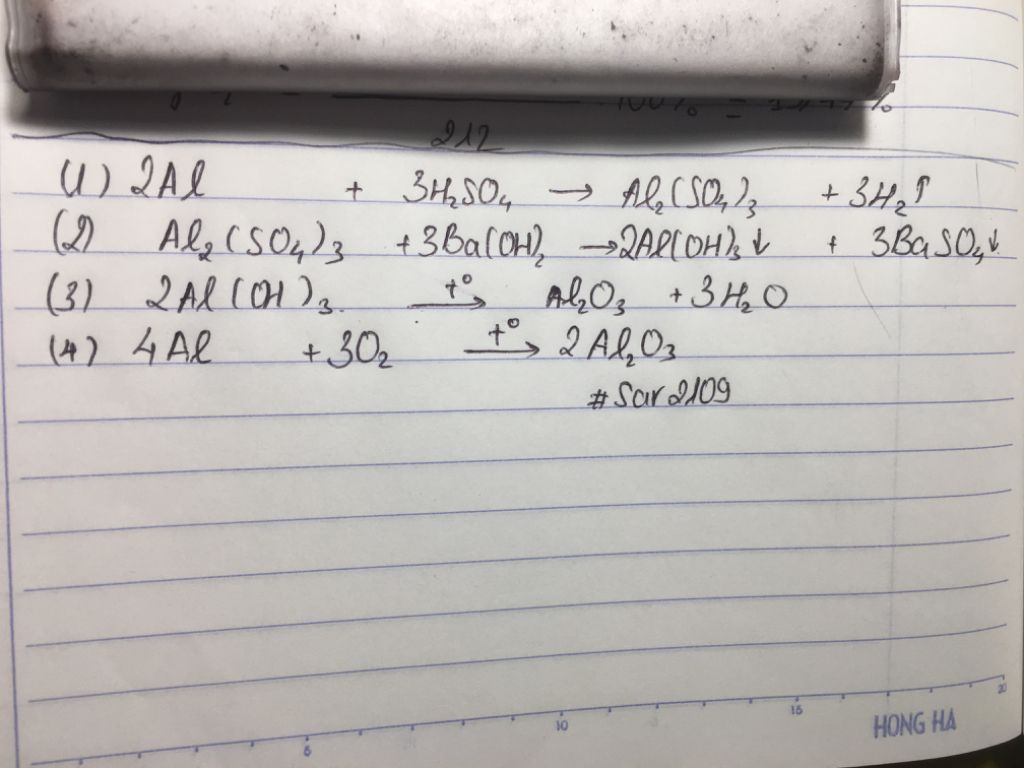 212
(1) 2Al + 3H₂SO₄ → Al₂(SO₄)₃ + 3H₂↑
(2) Al₂(SO₄)₃ + 3Ba(OH)₂ → 2Al(OH)₃↓ + 3BaSO₄↓
(3) 2Al(OH)₃ t° → Al₂O₃ + 3H₂O
(4) 4Al + 3O₂ t° → 2Al₂O₃
#Sar2109
5 10 15 20
HONG HA